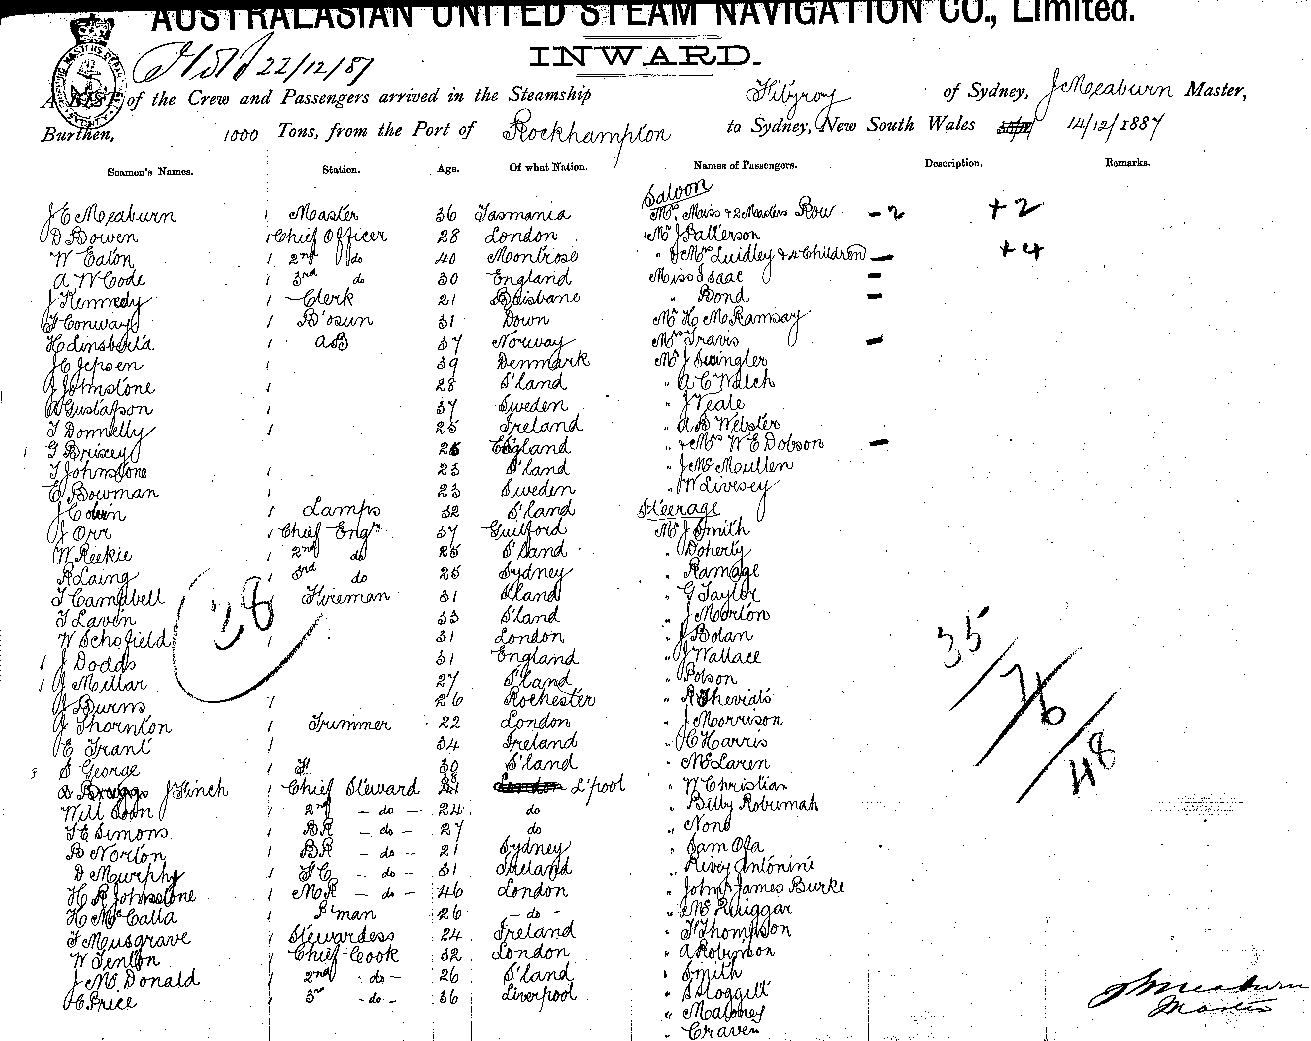 AUSTRALASIAN UNITED STEAM NAVIGATION CO., Limited.
INWARD.
22/12/87
A LIST of the Crew and Passengers arrived in the Steamship Fitzroy of Sydney, J Meaburn Master,
Burthen, 1000 Tons, from the Port of Rockhampton to Sydney, New South Wales 14/12/1887
Seamen's Names. Station. Ages. Of what Nation. Names of Passengers. Description. Remarks.
Saloon
J E Meaburn 1 Master 36 Tasmania Mrs, Miss & 2 Masters Row - 2 + 2
D Bowen 1 Chief Officer 28 London Mr J Patterson
W Eaton 1 2nd do 40 Montrose " & Mrs Luidley & 4 Children - + 4
A W Code 1 3rd do 30 England Miss Isaac -
J Kennedy 1 Clerk 21 Brisbane " Bond -
F Conway 1 B'osun 31 Down Mr H McRamsay
1 AB 37 Norway Mrs Travis -
J C Jepsen 1 39 Denmark Mr J Swingler
J Johnstone 1 28 S'land " A C Walch
A Gustafson 1 37 Sweden " J Veale
T Donnelly 1 25 Ireland " A B Webster
G Briscey 26 England " & Mrs W E Dobson -
T Johnstone 23 S'land " J McMoullen
E Bowman 1 23 Sweden " W Livesey
J 1 Lamps 32 S'land Steerage
J Orr 1 Chief Engr 37 Guilford Mr J Smith
W Reekie 1 2nd do 25 S'land " Doherty
R Laing 3rd do 25 Sydney " Ramage
T Campbell 1 Fireman 31 S'land " G Taylor
T Lavin 1 33 S'land " J Morton
W Schofield 1 31 London " J Bolan
1 J Dodds 31 England " J Wallace
1 J Millar 27 S'land " Pobson
J Burns 1 26 Rochester " R
J Thornton 1 Trimmer 22 London " J Morrison
E Grant 1 34 Ireland " H C Harris
S George 1 F. 30 S'land " McLaren
J Finch 1 Chief Steward L'pool " W Christian
Will 1 2nd - do - 24 do " Billy Robumah
F E Simons 1 BR - do - 27 do " Nono
B Norton 1 BR - do - 21 Sydney " Sam Ofa
D Murphy 1 FC - do - 31 Ireland " Antonini
H R Johnstone 1 MR - do - 46 London " John & James Burke
H McCalla 1 P'man 26 - do - " McQuiggar
F Musgrave 1 Stewardess 24 Ireland " F Thompson
W Fenton 1 Chief Cook 32 London " A Robinson
J McDonald 1 2nd - do - 26 S'land " Smith
H C Price 1 3rd - do - 36 Liverpool " S Sloggett
" Maloney
" Craven
38
35/76/48
J Meaburn
Master